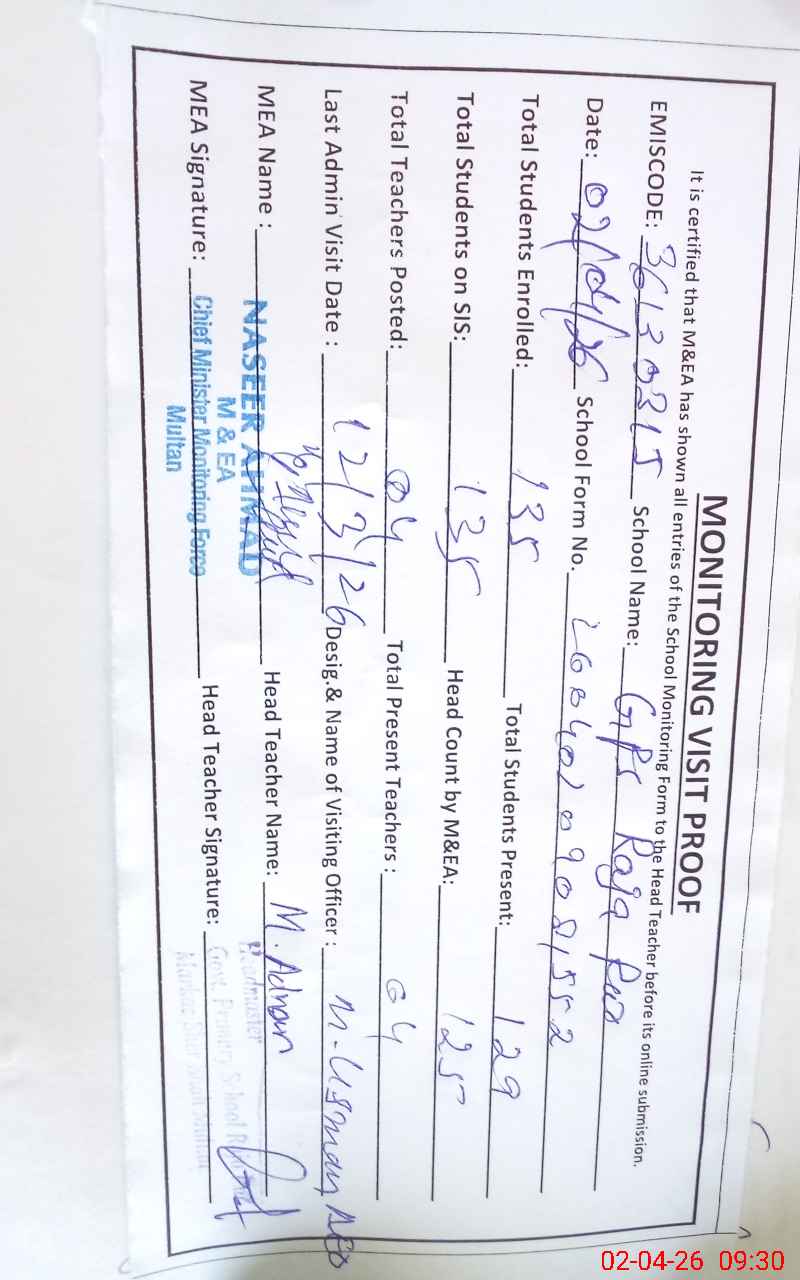 MONITORING VISIT PROOF
It is certified that M&EA has shown all entries of the School Monitoring Form to the Head Teacher before its online submission.
EMISCODE: 36130315 School Name: GPS Raja Pur
Date: 02/04/26 School Form No. 26040209081552
Total Students Enrolled: 135 Total Students Present: 129
Total Students on SIS: 135 Head Count by M&EA: 125
Total Teachers Posted: 04 Total Present Teachers: 04
Last Admin Visit Date: 12/3/26 Desig.& Name of Visiting Officer: M. Usman AEO
MEA Name: NASEER AHMAD Head Teacher Name: M. Adnan
M & EA
MEA Signature: Chief Minister Monitoring Force Head Teacher Signature:
Multan
Headmaster
Govt. Primary School
02-04-26 09:30